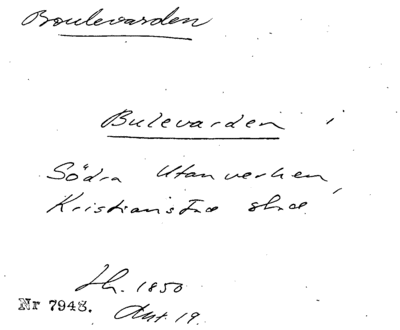 Boulevarden
Bulevarden i
Södra Utanverken,
Kristianstad stad
Th. 1850
Nr 7948. Ant. 19.